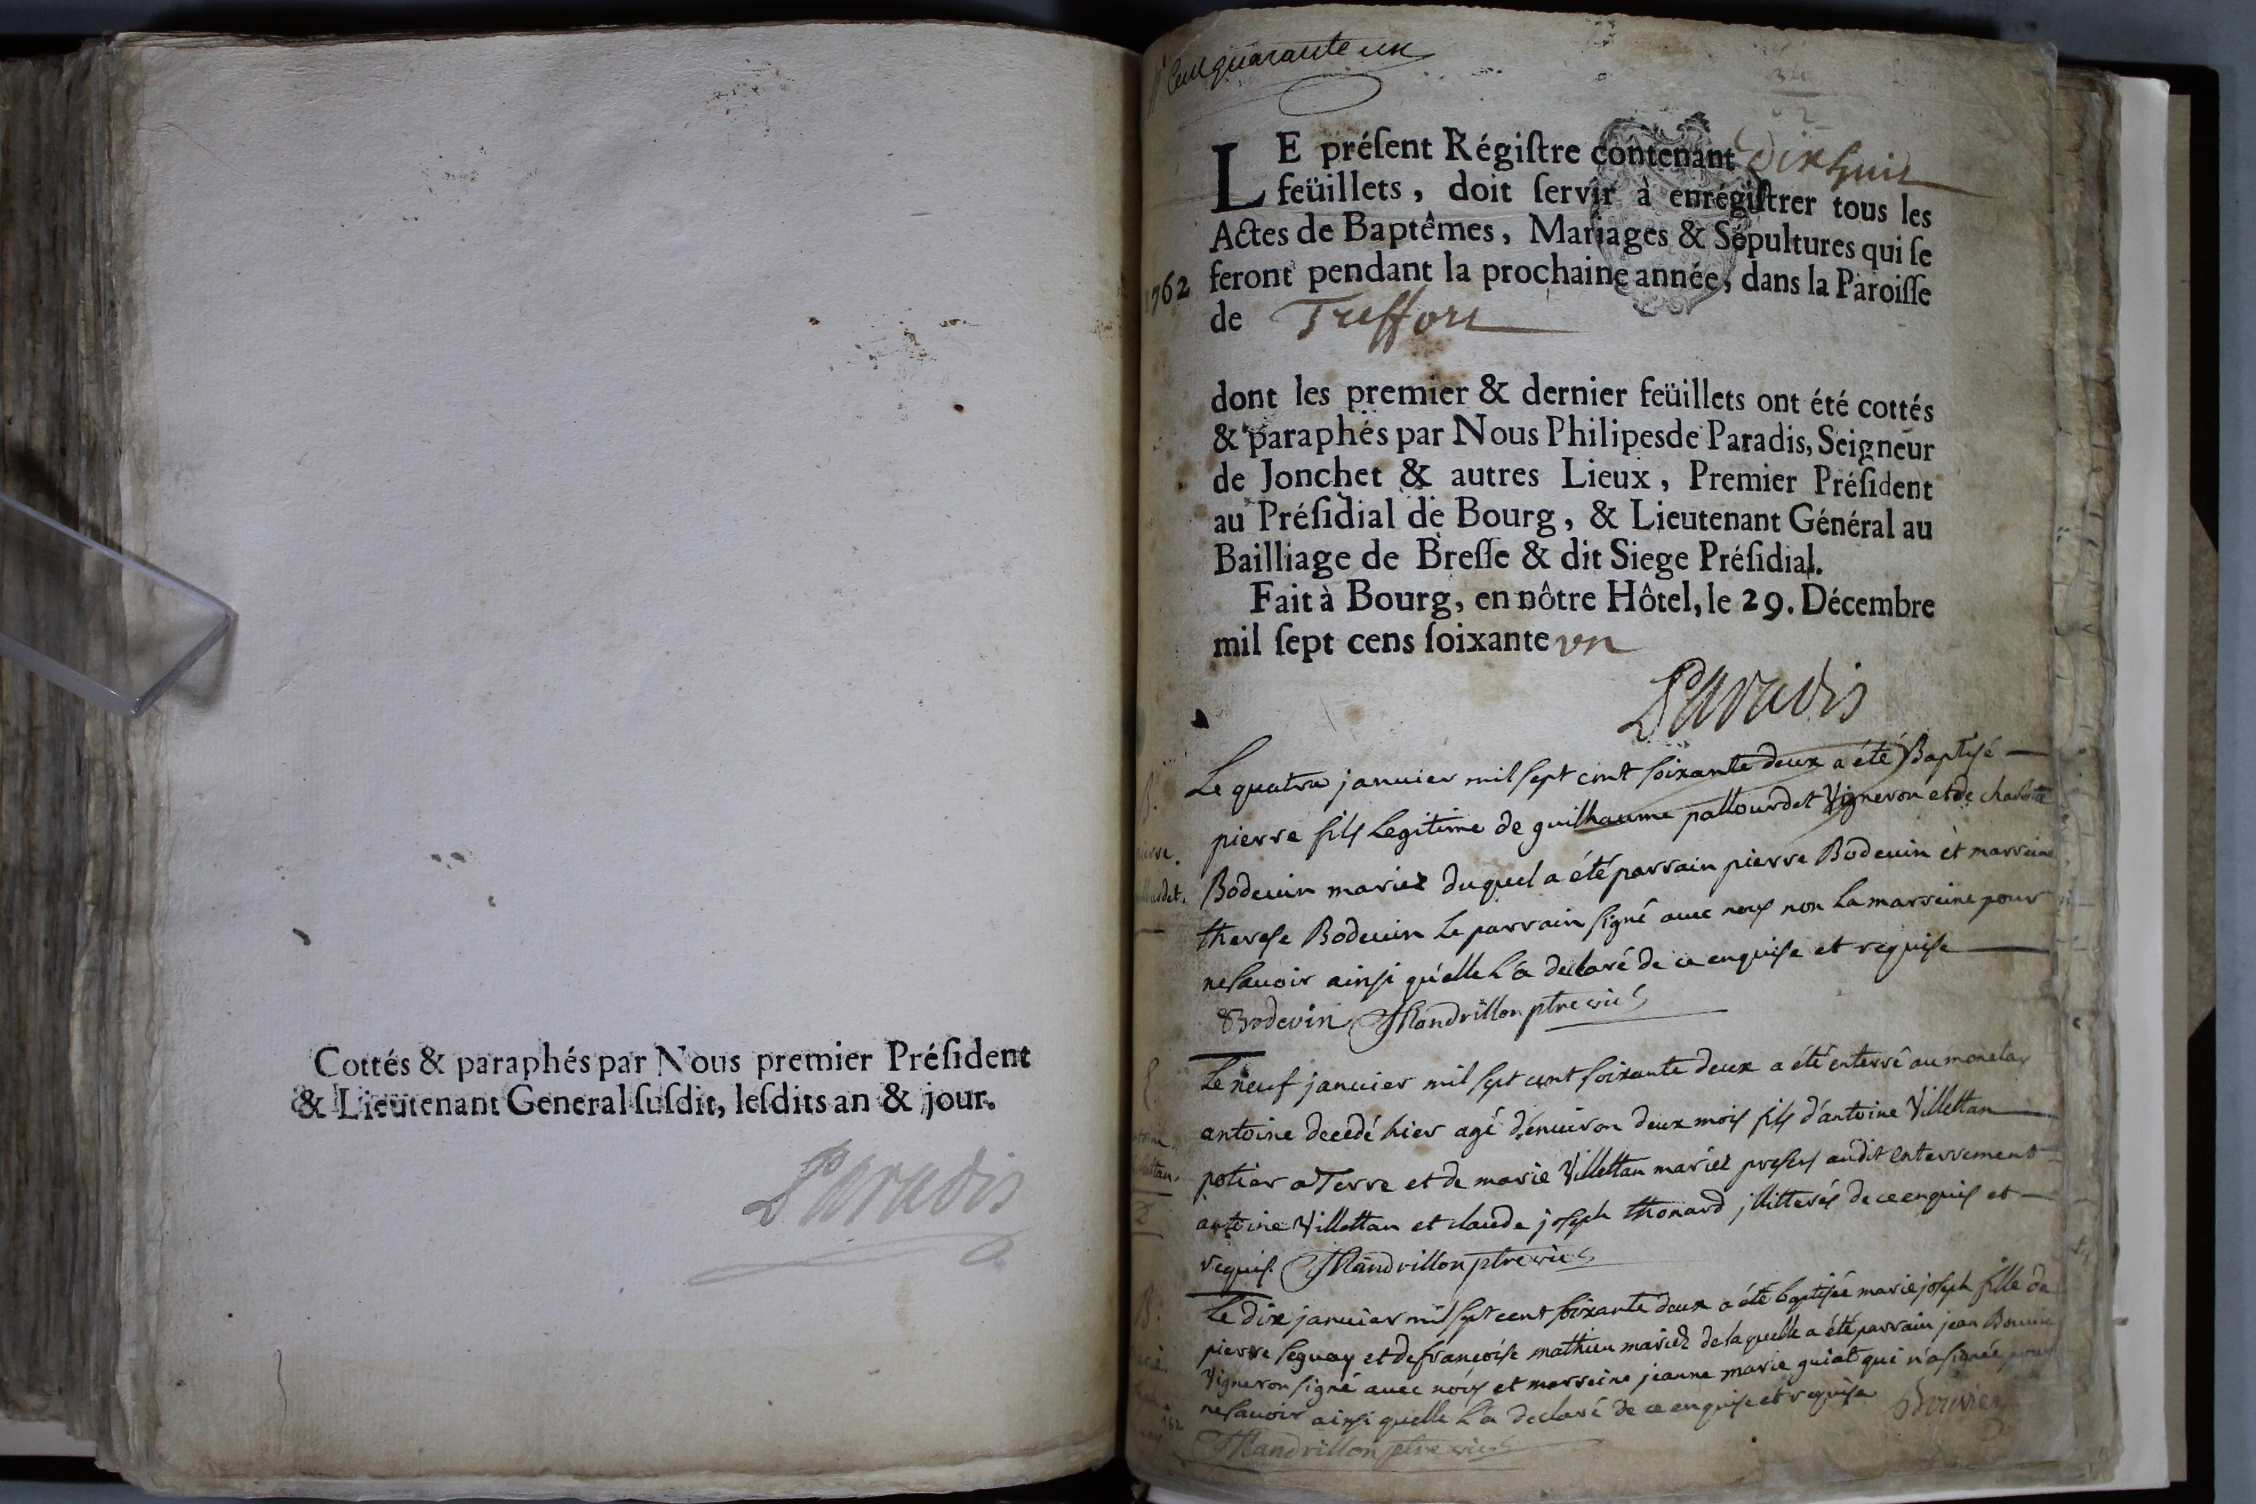 Cottés & paraphés par Nous premier Préſident
& Lieütenant General ſuſdit, leſdits an & jour.
Paradis
Cent quarante un
LE préſent Régiſtre contenant dix huit
feüillets, doit ſervir à enrégiſtrer tous les
Actes de Baptêmes, Mariages & Sépultures qui ſe
1762 feront pendant la prochaine année, dans la Paroiſſe
de Treffort
dont les premier & dernier feüillets ont été cottés
& paraphés par Nous Philipes de Paradis, Seigneur
de Jonchet & autres Lieux, Premier Préſident
au Préſidial de Bourg, & Lieutenant Général au
Bailliage de Breſſe & dit Siege Préſidial.
Fait à Bourg, en nôtre Hôtel, le 29. Décembre
mil ſept cens ſoixante un
Paradis
B. Le quatre janvier mil sept cent soixante deux a été Baptisé
pierre fils legitime de guilhaume pallourdet Vigneron et de charlotte
Bodevin mariez duquel a été parrain pierre Bodevin et marreine
therese Bodevin le parrain signé avec nous non la marreine pour
ne savoir ainsi qu'elle l'a declaré de ce enquise et requise
Bodevin Mandrillon ptre vic
Le neuf janvier mil sept cent soixante deux a été enterré au
antoine decedé hier agé d'environ deux mois fils d'antoine Villettan
potier a Terre et de marie Villettan mariez presens audit enterrement
antoine Villettan et claude joseph thonard jllitterés de ce enquis et
requis. Mandrillon ptre vic
B. Le dix janvier mil sept cent soixante deux a été baptisée marie joseph fille de
pierre seguay et de francoise mathieu mariez de laquelle a été parrain jean
Vigneron signé avec nous et marreine jeanne marie guiat qui n'a signée pour
ne savoir ainsi quelle l'a declaré de ce enquise et requise Bouvier
Mandrillon ptre vic